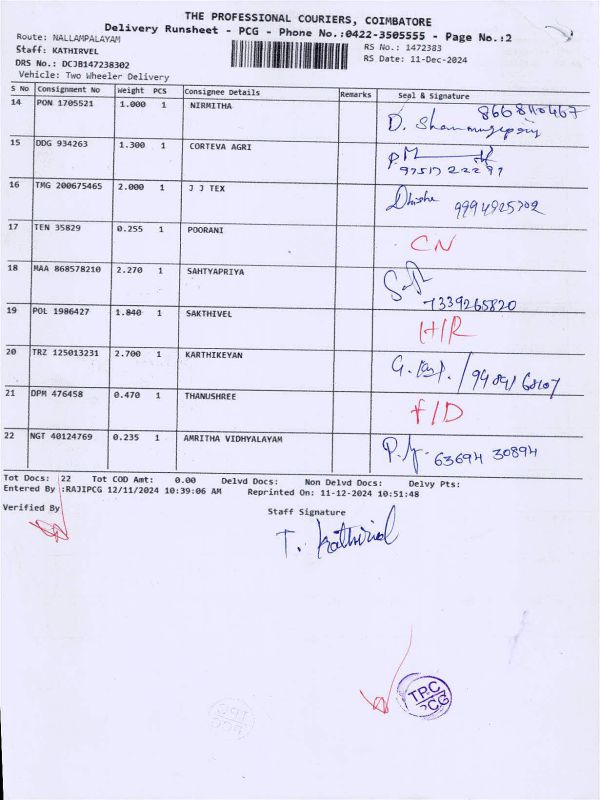 THE PROFESSIONAL COURIERS, COIMBATORE
Delivery Runsheet - PCG - Phone No.:0422-3505555 - Page No.:2
Route: NALLAMPALAYAM
RS No.: 1472383
Staff: KATHIRVEL
RS Date: 11-Dec-2024
DRS No.: DCJB147238302
Vehicle: Two Wheeler Delivery
S No Consignment No Weight PCS Consignee Details Remarks Seal & Signature
14 PON 1705521 1.000 1 NIRMITHA 8668110467
D.
15 DDG 934263 1.300 1 CORTEVA AGRI PM
97517 22297
16 TMG 200675465 2.000 1 J J TEX 9994925302
17 TEN 35829 0.255 1 POORANI CN
18 MAA 868578210 2.270 1 SAHTYAPRIYA
7339265820
19 POL 1986427 1.840 1 SAKTHIVEL H/R
20 TRZ 125013231 2.700 1 KARTHIKEYAN G.
21 DPM 476458 0.470 1 THANUSHREE F/D
22 NGT 40124769 0.235 1 AMRITHA VIDHYALAYAM 63694 30894
Tot Docs: 22 Tot COD Amt: 0.00 Delvd Docs: Non Delvd Docs: Delvy Pts:
Entered By :RAJIPCG 12/11/2024 10:39:06 AM Reprinted On: 11-12-2024 10:51:48
Verified By
Staff Signature
T. Kathirvel
TPC
PCG